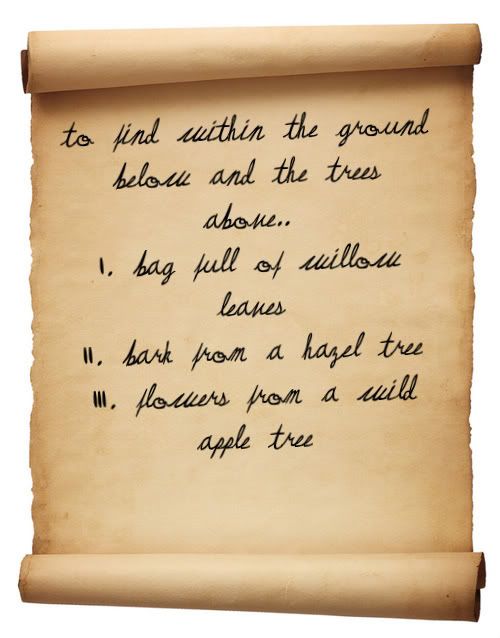 to find within the ground
below and the trees
above..
I. bag full of willow
leaves
II. bark from a hazel tree
III. flowers from a wild
apple tree